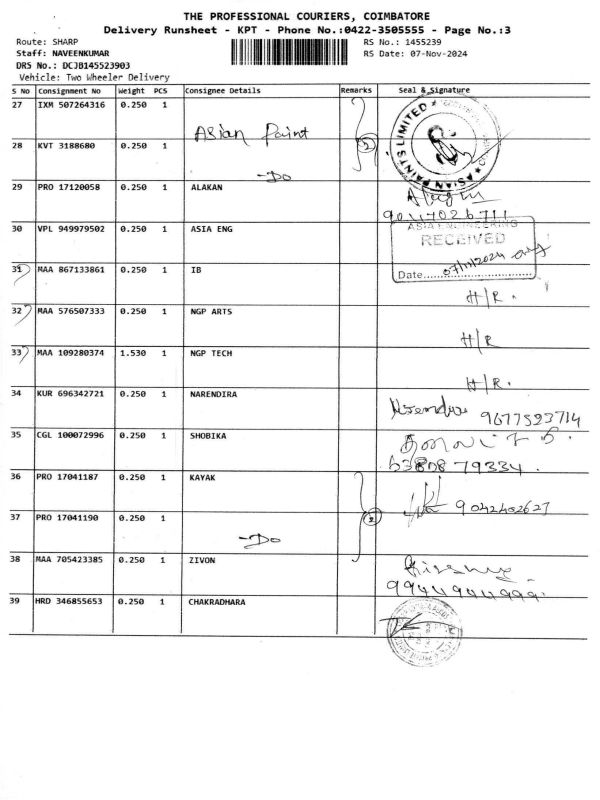 THE PROFESSIONAL COURIERS, COIMBATORE
Delivery Runsheet - KPT - Phone No.:0422-3505555 - Page No.:3
Route: SHARP RS No.: 1455239
Staff: NAVEENKUMAR RS Date: 07-Nov-2024
DRS No.: DCJB145523903
Vehicle: Two Wheeler Delivery
S No Consignment No Weight PCS Consignee Details Remarks Seal & Signature
27 IXM 507264316 0.250 1 Asian Paint
ASIAN PAINTS LIMITED
28 KVT 3188680 0.250 1 -Do 2
29 PRO 17120058 0.250 1 ALAKAN
30 VPL 949979502 0.250 1 ASIA ENG
ASIA ENGINEERING
RECEIVED
Date 07/11/2024
31 MAA 867133861 0.250 1 IB H/R.
32 MAA 576507333 0.250 1 NGP ARTS H/R
33 MAA 109280374 1.530 1 NGP TECH H/R.
34 KUR 696342721 0.250 1 NARENDIRA 9677523714
35 CGL 100072996 0.250 1 SHOBIKA
63808 79334.
36 PRO 17041187 0.250 1 KAYAK 9042402627
37 PRO 17041190 0.250 1 -Do 2
38 MAA 705423385 0.250 1 ZIVON
9944944999.
39 HRD 346855653 0.250 1 CHAKRADHARA